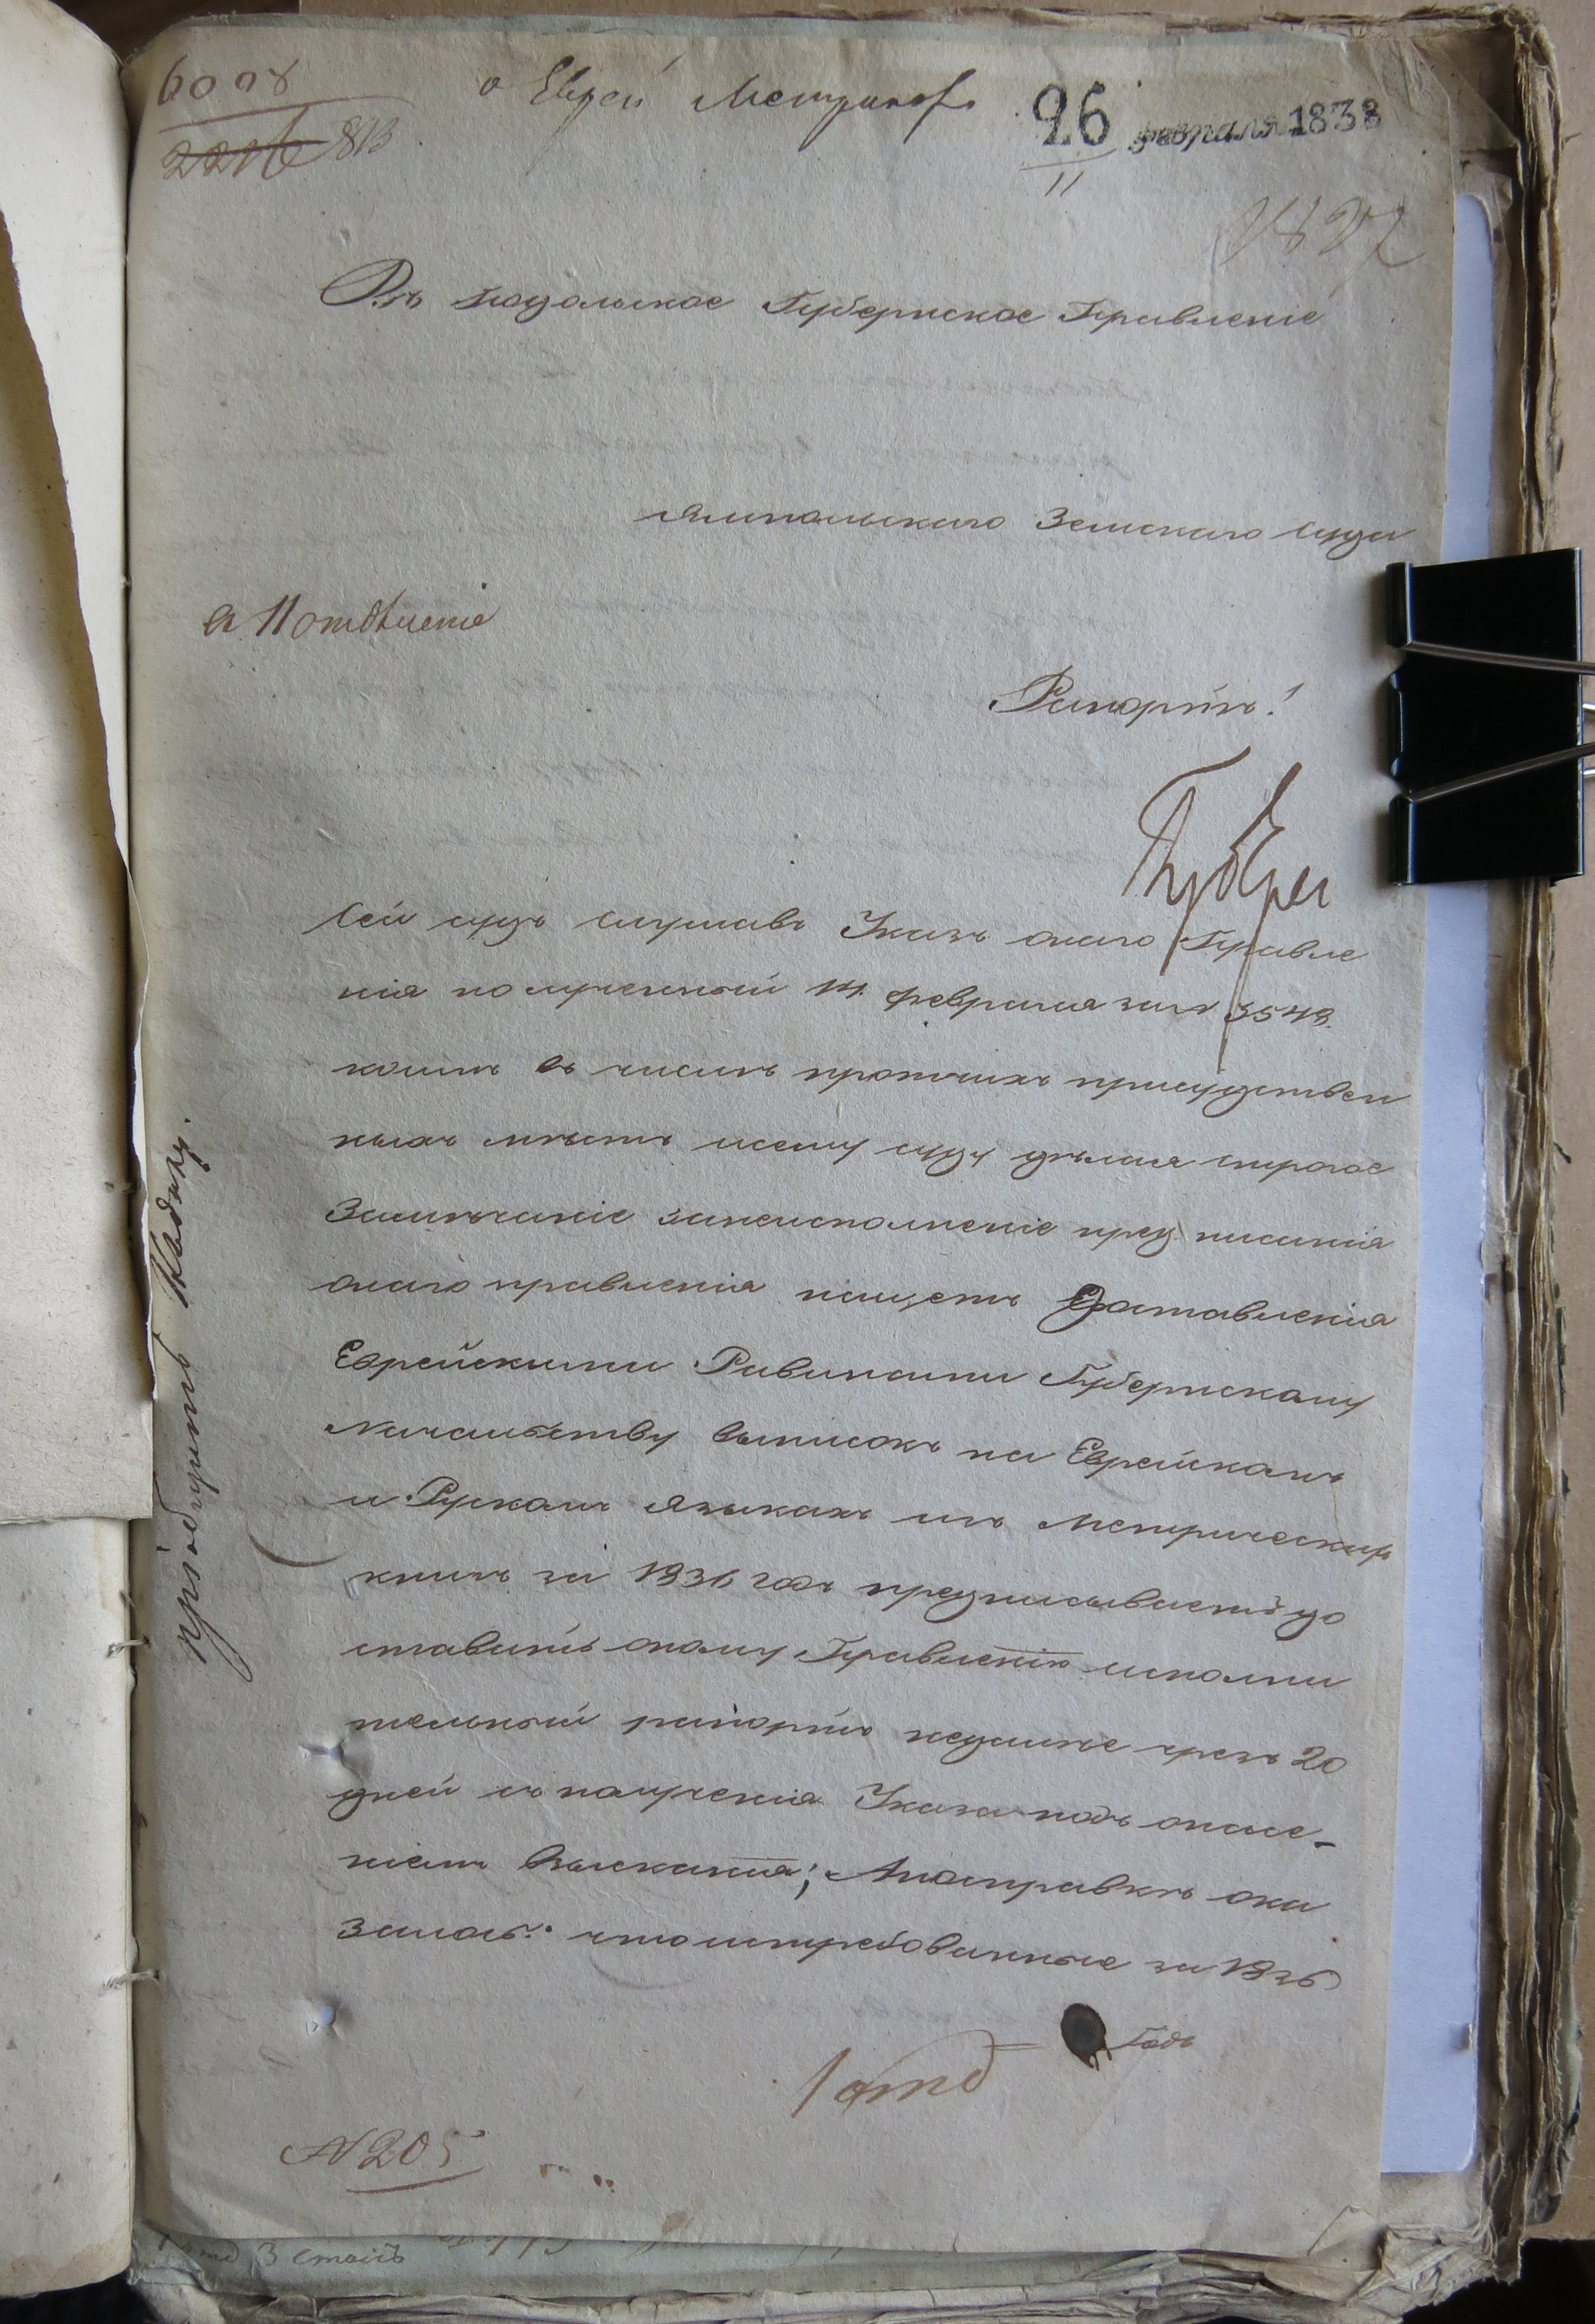 6098
2216 813
о Еврей Метриках
26 февраля 1838
11
1827
Въ Подольское Губернское Правленіе
Ямпольскаго Земскаго Суда
въ II отдѣленіе
Рапортъ!
Губер
Сей судъ слушавъ Указъ онаго Правле
нія полученный 14. февраля за № 3548.
коимъ въ числѣ протчихъ присудствен
ныхъ мѣстъ и сему суду дѣлая строгое
Замѣчаніе за неисполненіе пред писанія
онаго правленія насчетъ Доставленія
Еврейскими Равинами Губернскому
Начальству выписокъ на Еврейскомъ
и Рускомъ Языкахъ изъ Метрическихъ
книгъ за 1836 годъ предписываетъ до
ставить оному Правленію исполни
тельный рапортъ недалѣе чрезъ 20
дней съ полученія Указа подъ опасе-
ніемъ Взысканія; А по справкѣ ока
залось: что истребованные за 1836
Годъ
1 отд
№ 205
пріобщить къ дѣлу.
3 столъ